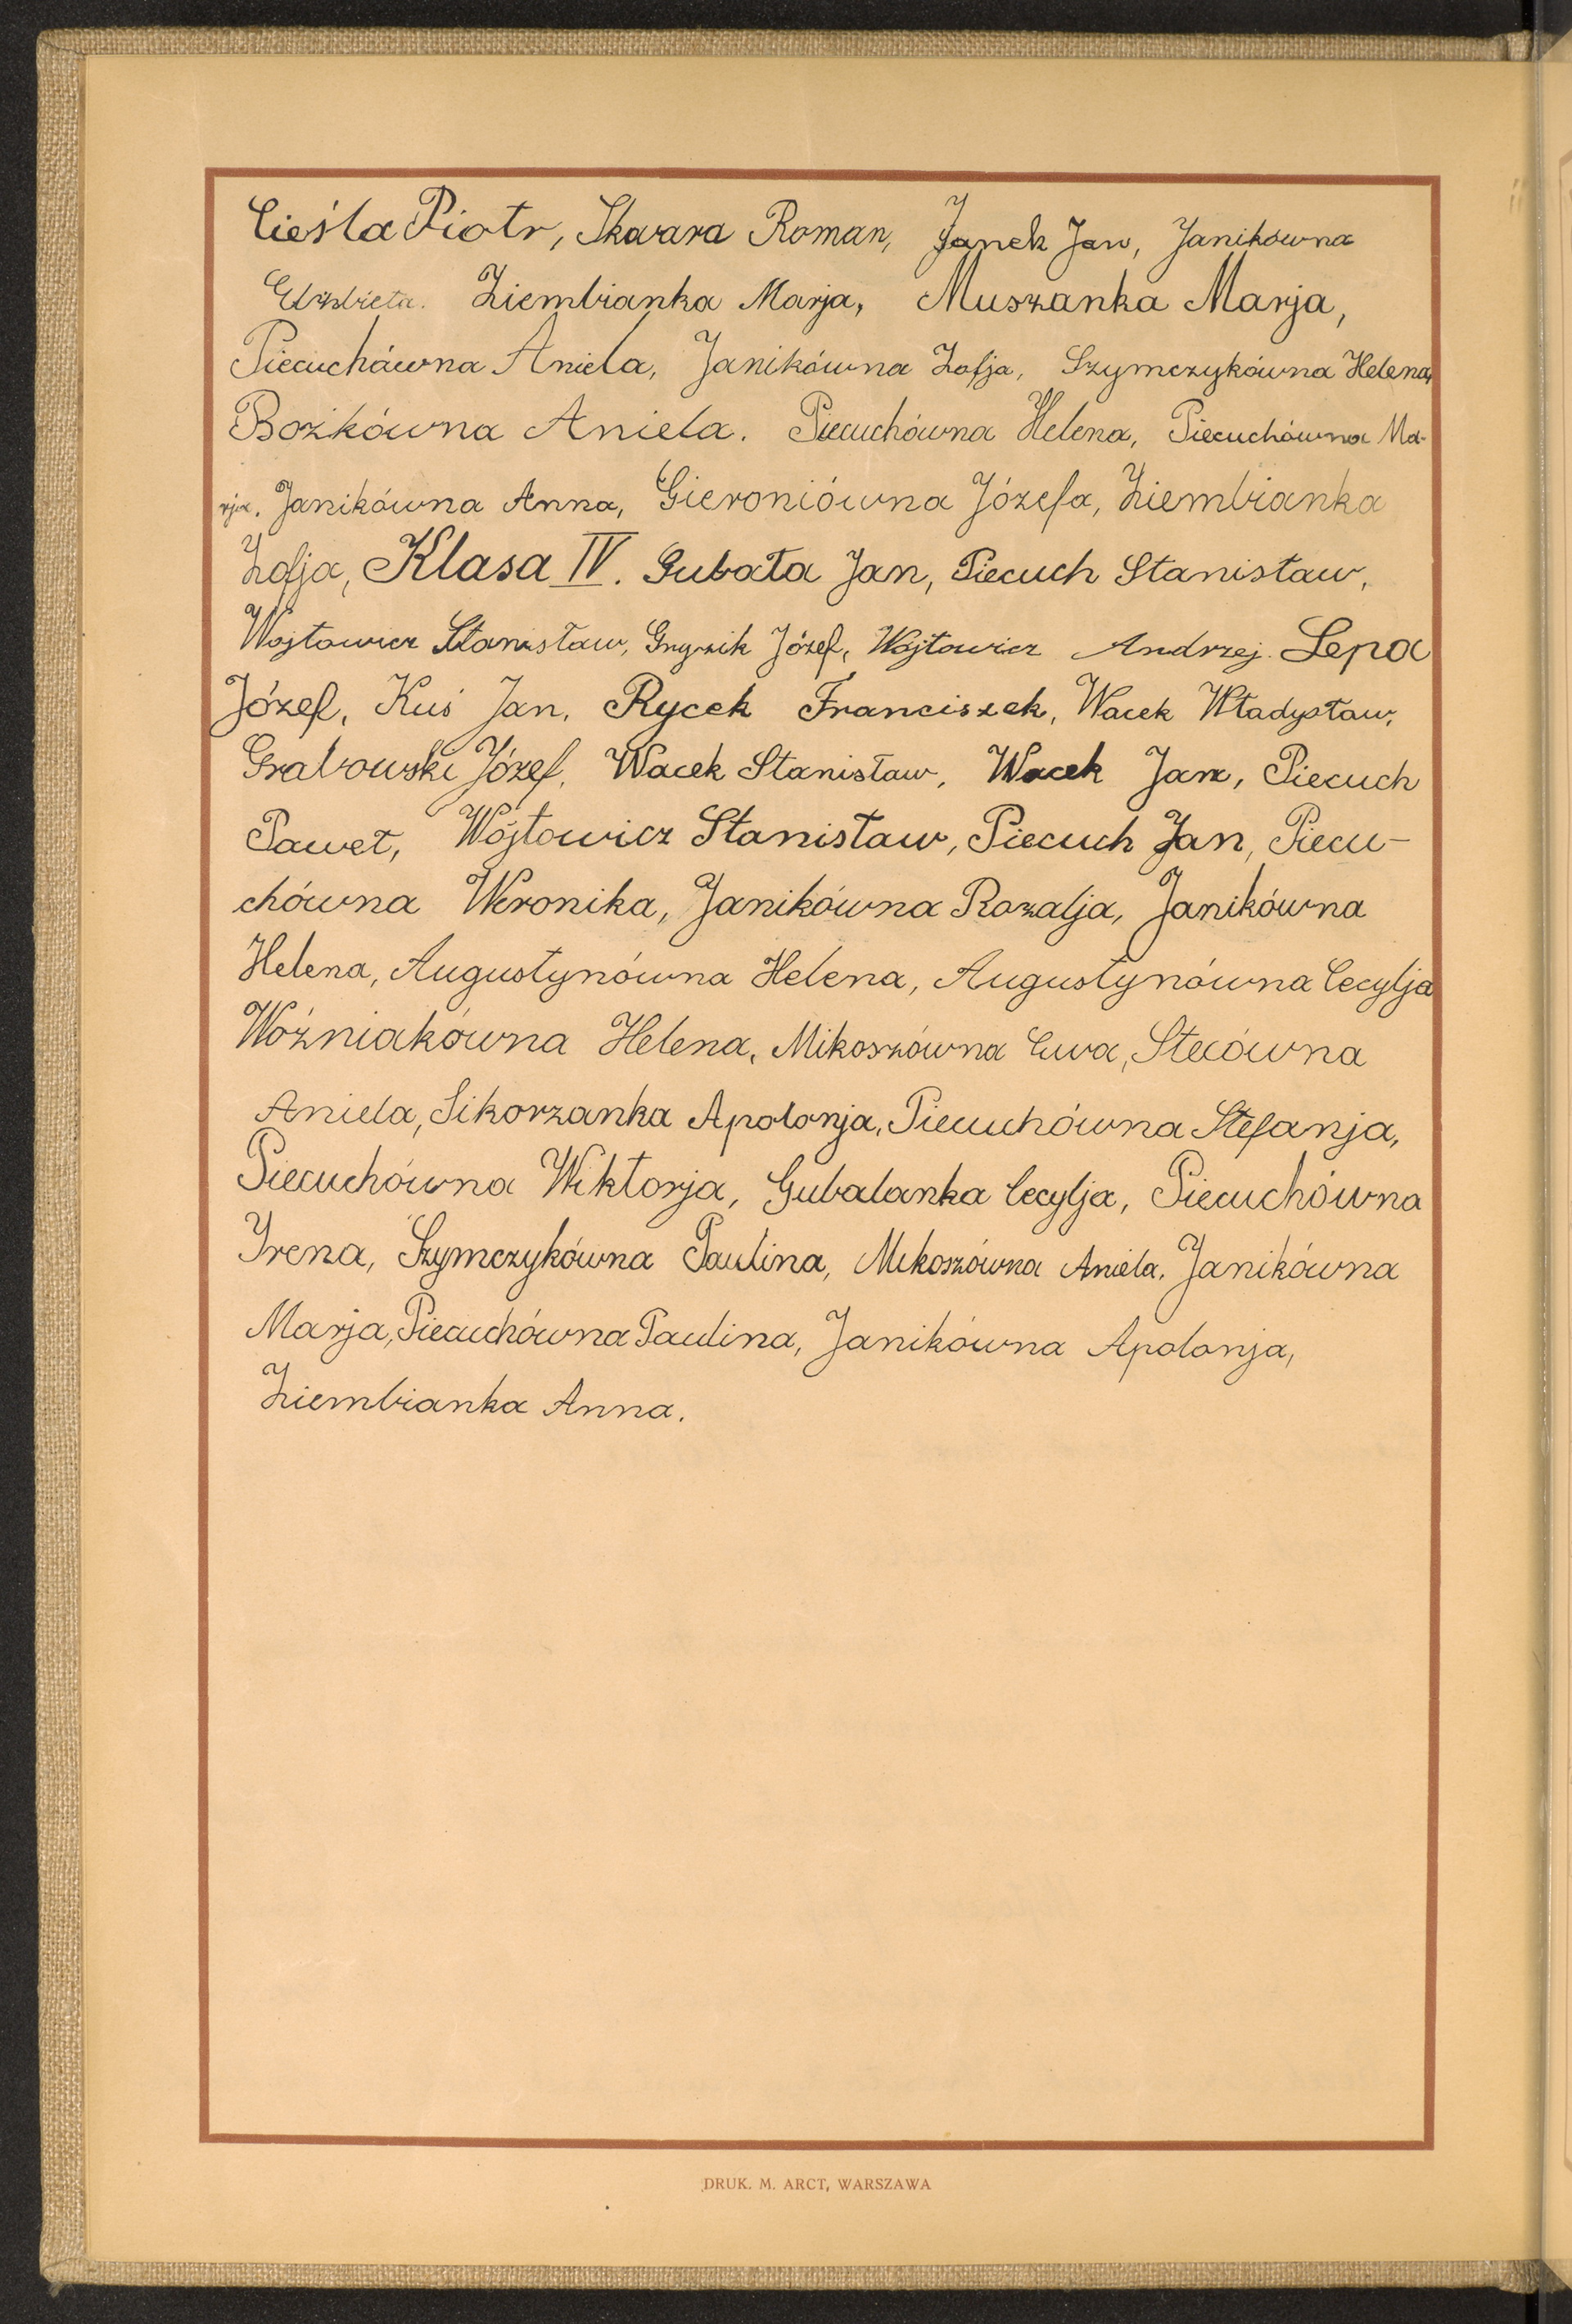 Cieśla Piotr, Skwara Roman, Janek Jan, Janikówna
Elżbieta. Ziembianka Marja, Muszanka Marja,
Piecuchówna Aniela, Janikówna Zofja, Szymczykówna Helena,
Bożkówna Aniela. Piecuchówna Helena, Piecuchówna Ma-
rja. Janikówna Anna, Gieroniówna Józefa, Ziembianka
Zofja, Klasa IV. Gubała Jan, Piecuch Stanisław,
Wojtowicz Stanisław, Gryzik Józef, Wójtowicz Andrzej. Lepa
Józef, Kuś Jan, Rycek Franciszek, Wacek Władysław,
Grabowski Józef, Wacek Stanisław, Wacek Jan, Piecuch
Paweł, Wójtowicz Stanisław, Piecuch Jan, Piecu-
chówna Weronika, Janikówna Rozalja, Janikówna
Helena, Augustynówna Helena, Augustynówna Cecylja
Woźniakówna Helena, Mikoszówna Ewa, Stecówna
Aniela, Sikorzanka Apolonja, Piecuchówna Stefanja,
Piecuchówna Wiktorja, Gubalanka Cecylja, Piecuchówna
Irena, Szymczykówna Paulina, Mikoszówna Aniela, Janikówna
Marja, Piecuchówna Paulina, Janikówna Apolonja,
Ziembianka Anna.
DRUK. M. ARCT, WARSZAWA